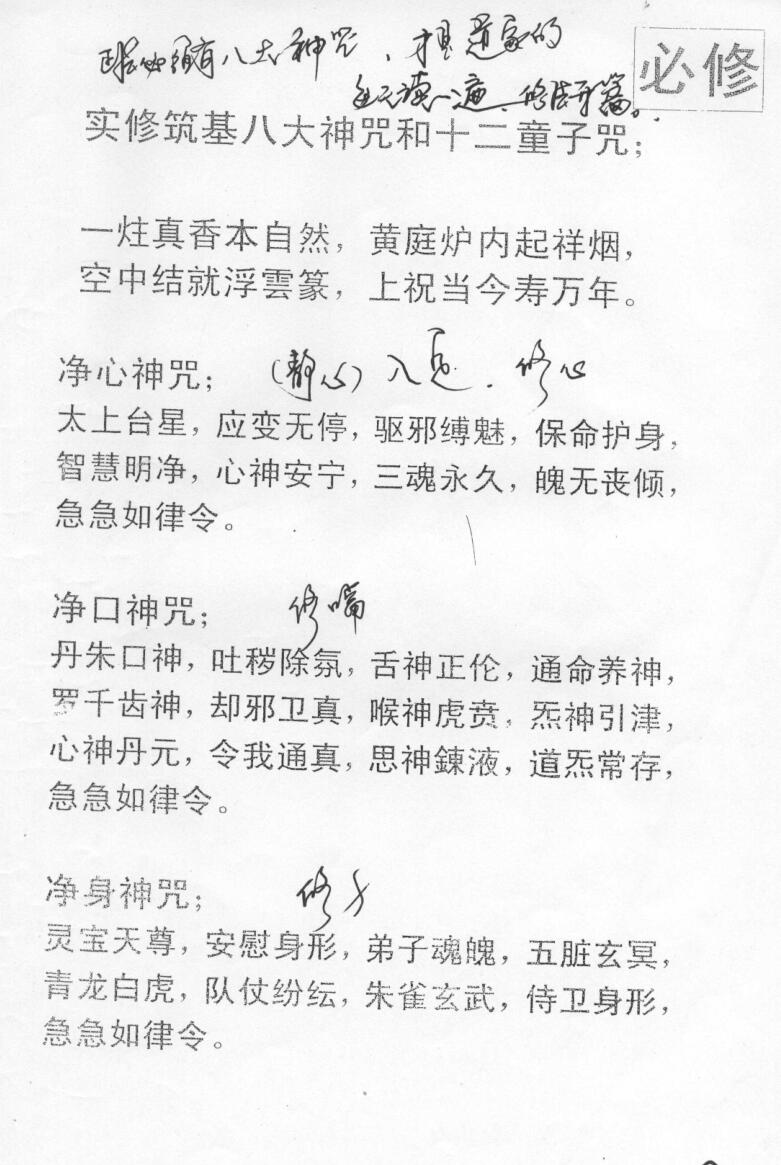 必修
有八大神咒，才是道家的
每天读一遍
实修筑基八大神咒和十二童子咒；
一炷真香本自然，黄庭炉内起祥烟，
空中结就浮雲篆，上祝当今寿万年。
净心神咒； (静心) 入 修心
太上台星，应变无停，驱邪缚魅，保命护身，
智慧明净，心神安宁，三魂永久，魄无丧倾，
急急如律令。
净口神咒； 修嘴
丹朱口神，吐秽除氛，舌神正伦，通命养神，
罗千齿神，却邪卫真，喉神虎贲，炁神引津，
心神丹元，令我通真，思神鍊液，道炁常存，
急急如律令。
净身神咒； 修身
灵宝天尊，安慰身形，弟子魂魄，五脏玄冥，
青龙白虎，队仗纷纭，朱雀玄武，侍卫身形，
急急如律令。